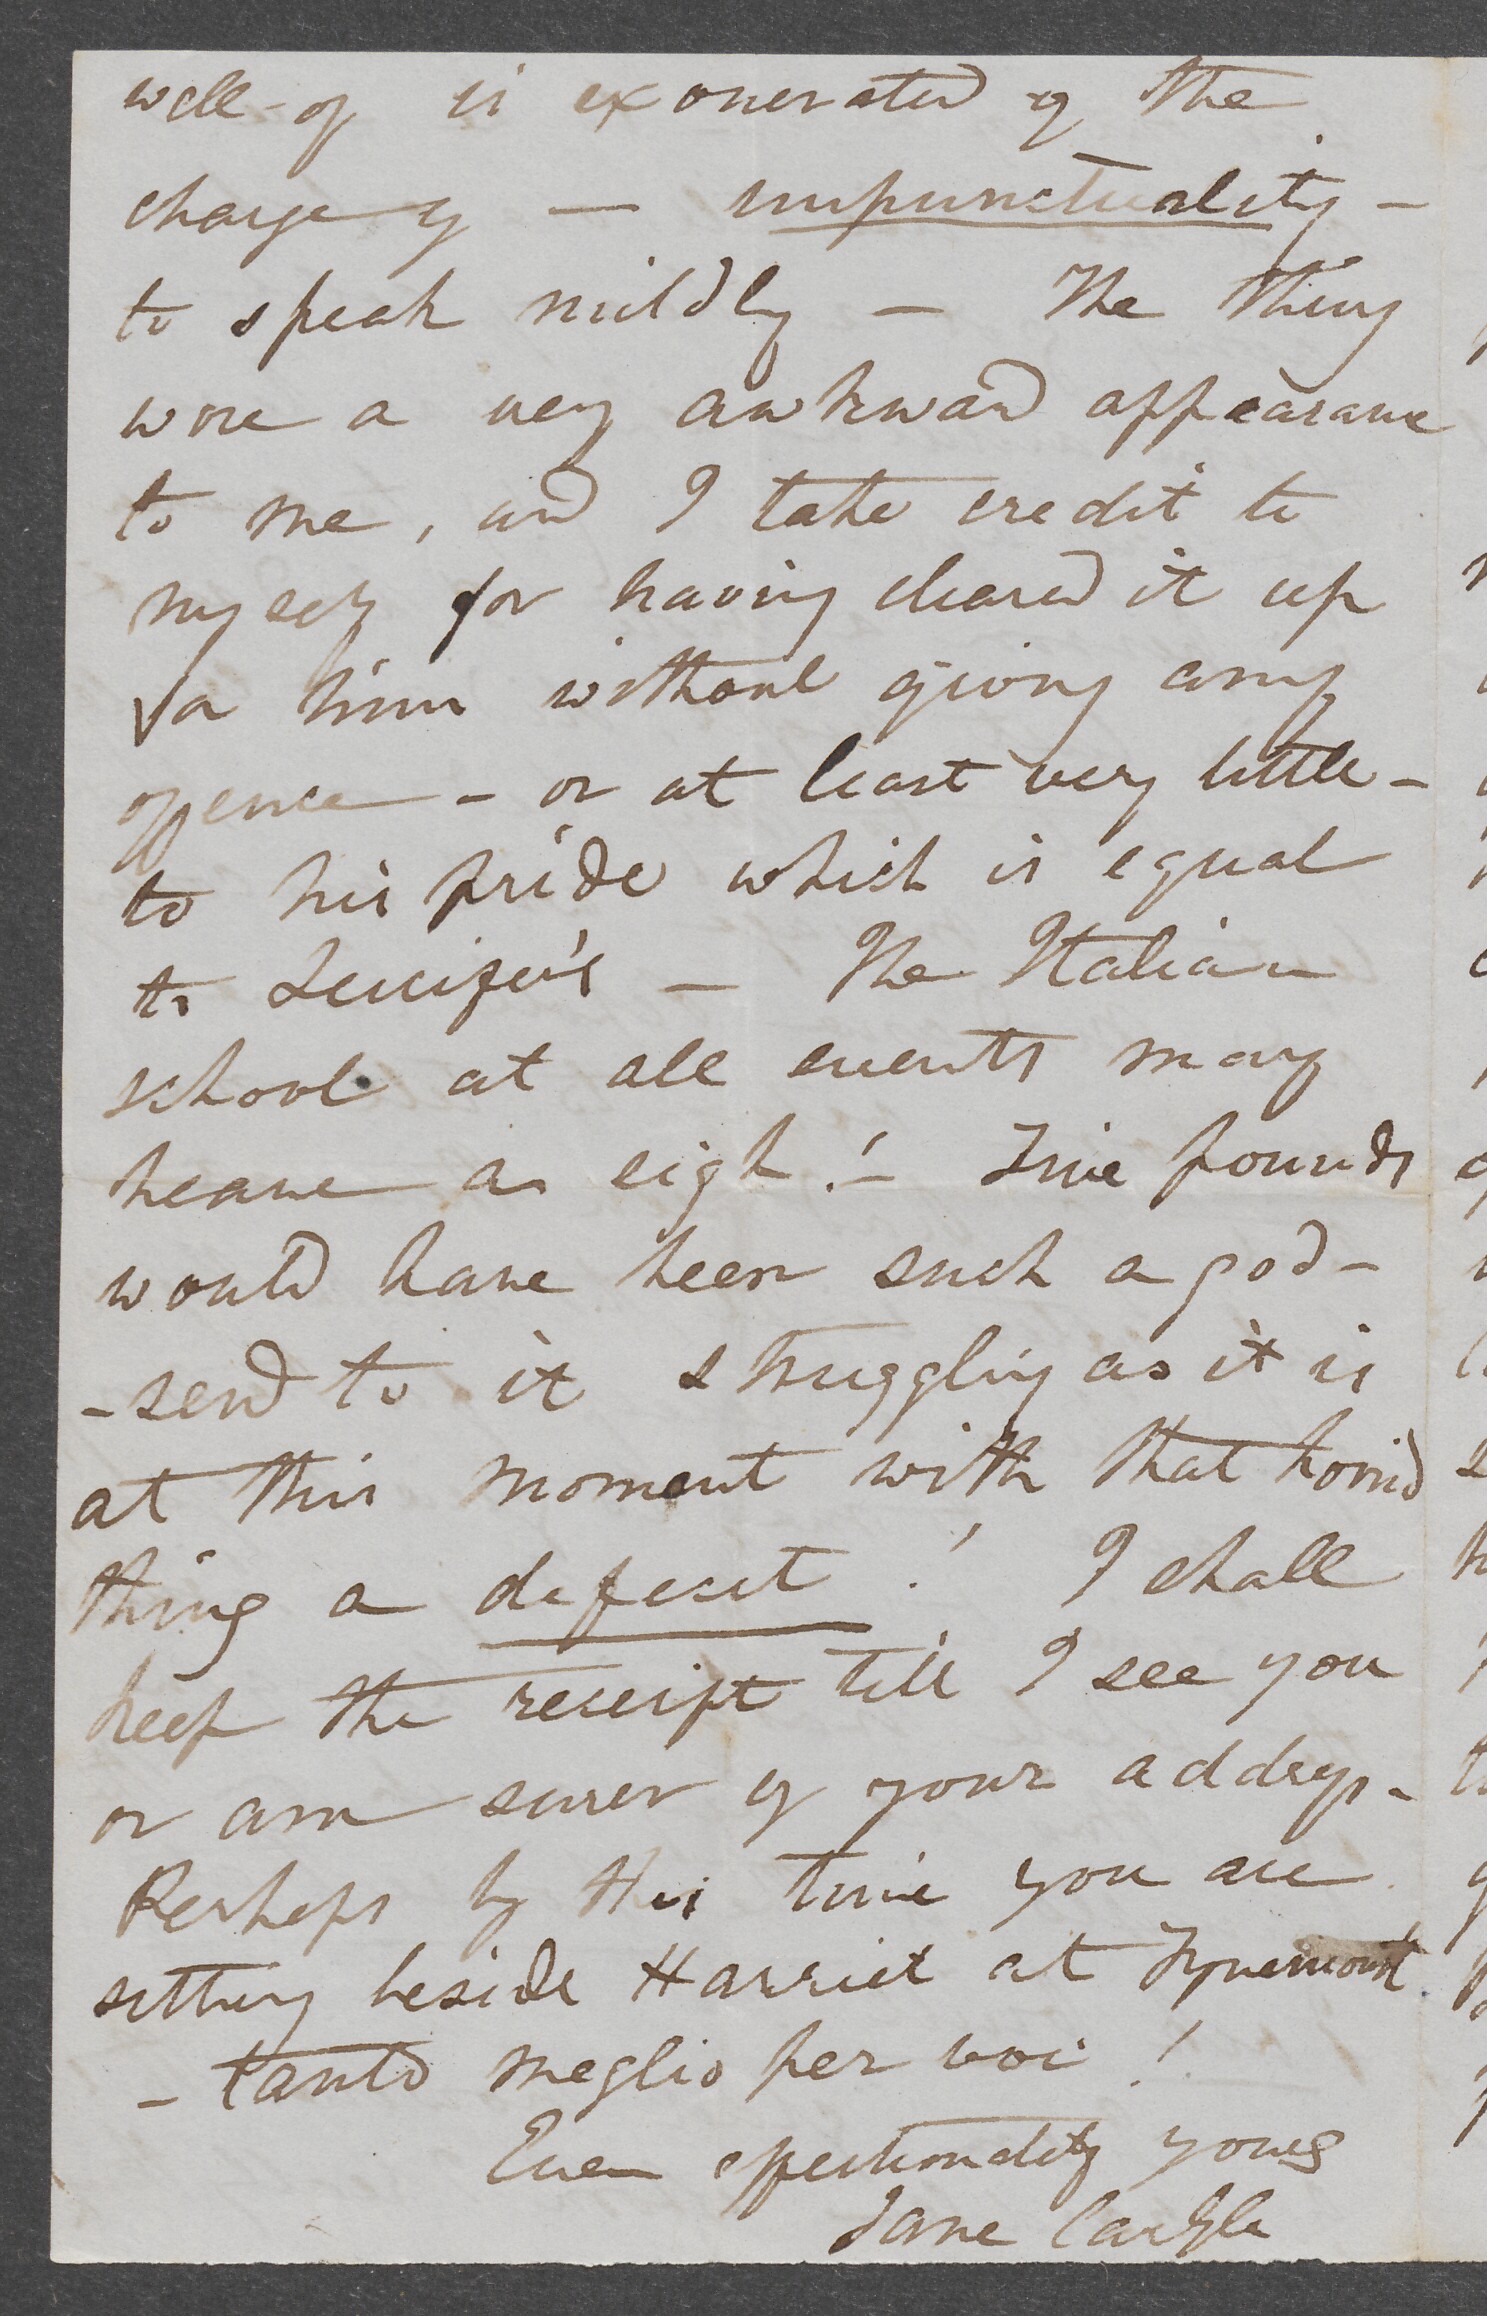 well-of is exonerated of the
charge of — unpunctuality -
to speak mildly — The thing
wore a very awkward appearance
to me, and I take credit to
myself for having cleared it up
for him without giving any
offence - or at least very little -
to his pride which is equal
to Lucifer's — The Italian
school at all events may
heave a sigh! - Five pounds
would have been such a god-
-send to it struggling as it is
at this moment with that horrid
thing a defecit! I shall
keep the receipt till I see you
or am surer of your address -
Perhaps by this time you are
sitting beside Harriet at Tynemouth.
- tanto meglio per voi!
Ever affectionately yours
Jane Carlyle